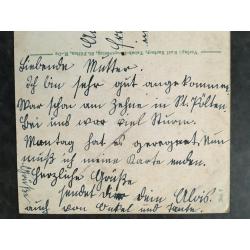 Verlag Karl
Liebende Mutter.
Ich bin sehr gut angekommen
War schon am Zehne in St. Pölten.
Bei uns war viel Sturm.
Montag hat es geregnet. Nun
muß ich meine Karte enden.
Herzliche Grüße
sendet dir dein Alois.
auch von Onkel und Tante.